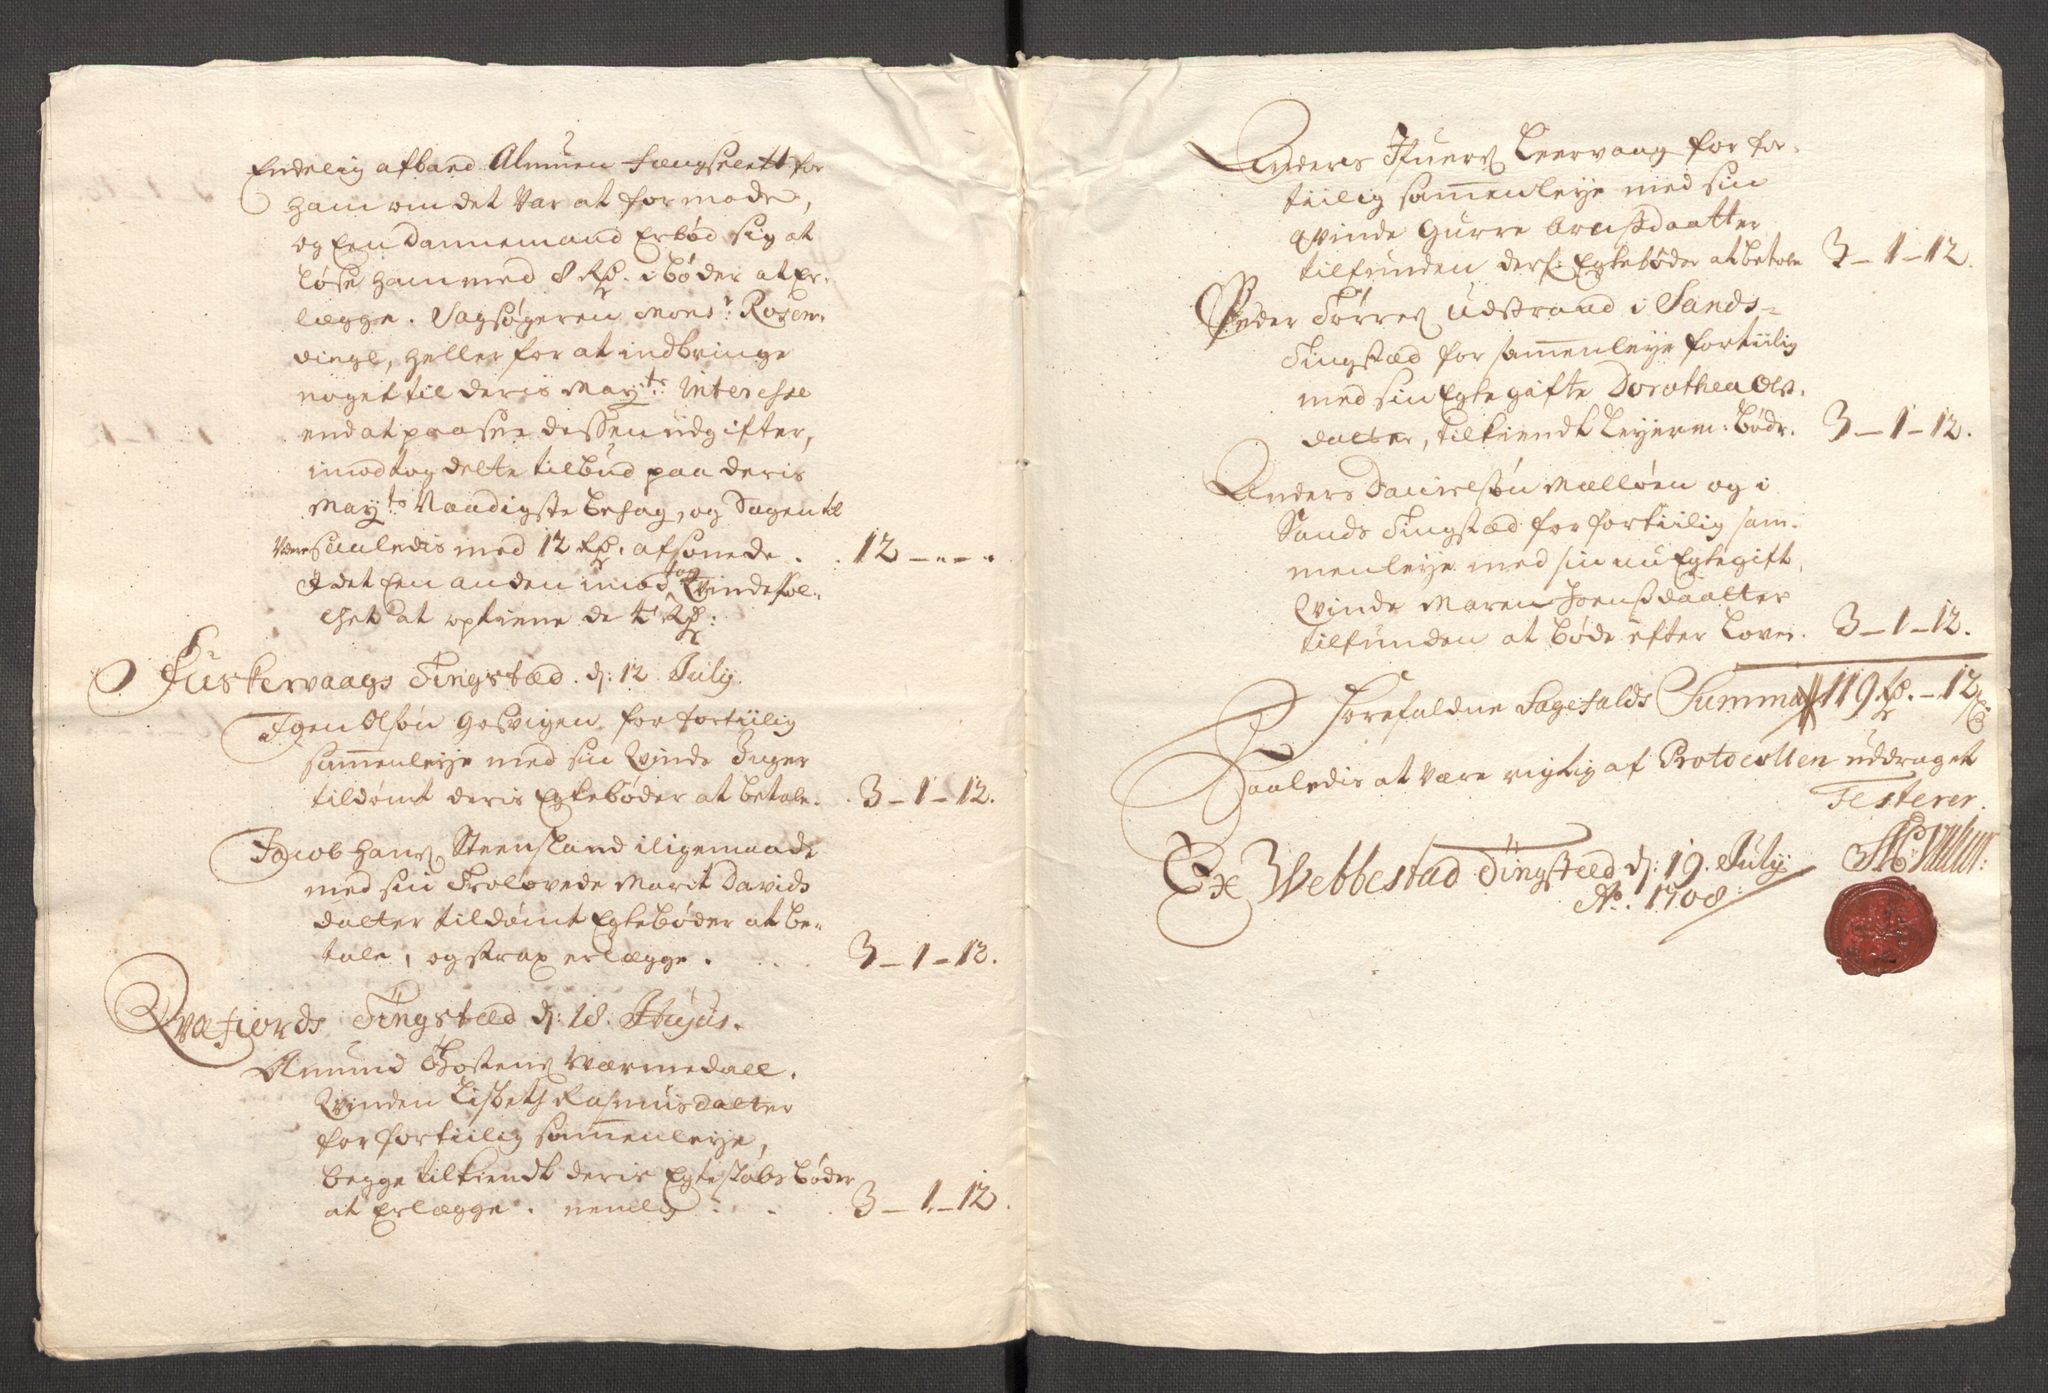 Endelig afbad Almuen Fengselett for
ham om det var at formode,
og Een Dannemand Erbød sig at
løse ham med 8 Rdr. i bøder at er-
lægge. Sagsøgeren Monsr: Rosen-
vinge, heller for at indbringe
noget til deris Mayts: Interesse
end at paasee dessen udgifter,
imodtog dette tilbud paa deris
Mayts Naadigste behag, og Sagen til
være saaledis med 12 Rdr. afsonede. . 12 - - -
I det Een anden imod tog Qvindfol-
chet at optiene de 4 Rdr:
Fuskevaags Tingstæd. d: 12 July.
Olsøn Gosvigen for fortiilig
sammenleye med sin Qvinde Inger
tildømt deris Egtebøder at betale. . 3 - 1 - 12.
Jacob Hans Steensland iligemaade
med sin Trolovede Marit Davids
datter tildømt Egtebøder at be-
tale, og strax erlægge. . . 3 - 1 - 12.
Qvæfiords Tingstæd d: 18. Hujus.
Amund Thostens Værmedall.
Qvinden Lisbeth Rasmusdatter
for fortiilig sammenleye,
begge tilkiendt deris Egteskabs bøder
at Erlægge. nemlig . . . 3 - 1 - 12.
Anders Iffuers Leervaag for for-
tiilig sammenleye med sin
qvinde Gurre Arnsdaatter
tilfunden ders: Egtebøder at betale 3 - 1 - 12.
Peder Tørres Udstrand i Sands-
Tingstæd for sammenleye fortiilig
med sin Egtegifte Dorothea Ols-
datter, tilkiendt Leyerm: bødr. 3 - 1 - 12.
Anders Danielsøn Melløen og i
Sands Tingstæd for fortiilig sam-
menleye med sin nu Egtegift.
Qvinde Maren Jensdaatter
tilfunden at bøde efter Loven. 3 - 1 - 12.
Forefaldne Sagefalds Summa 119 Rdr. - 12 ß
Saaledis at være rigtig af Protocollen uddraget
Testerer.
Ex Webbestad Tingsted d: 19. July
Ao. 1708